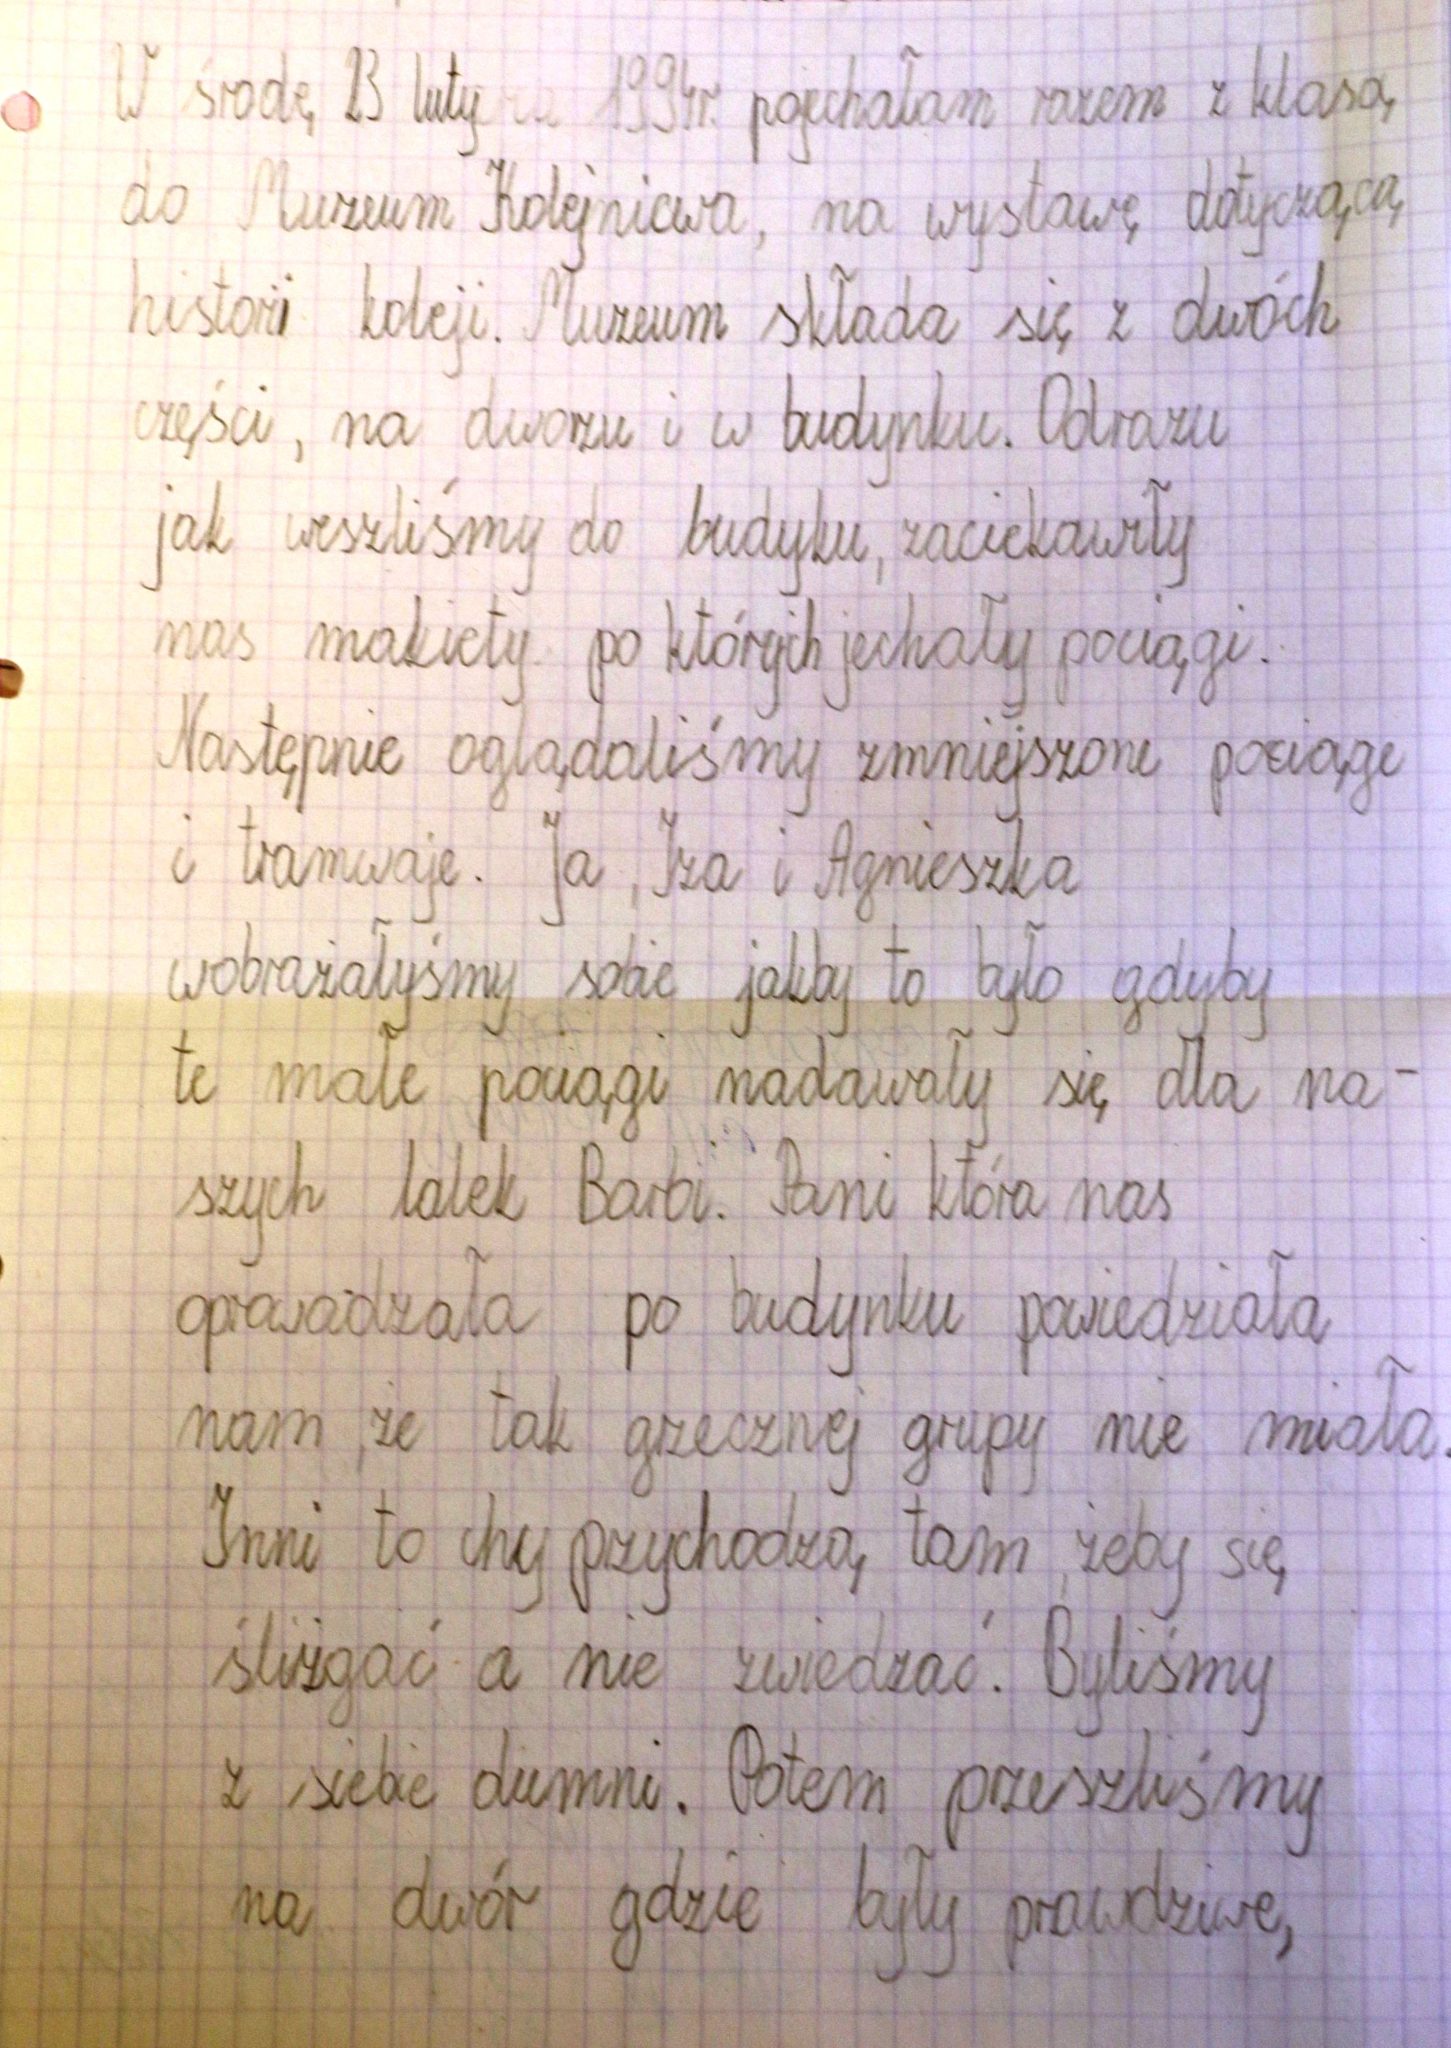 W środę 23 luty 1994r. pojechałam razem z klasą
do Muzeum Kolejnicwa, na wystawę dotyczącą
histori koleji. Muzeum składa się z dwóch
części, na dworzu i w budynku. Odrazu
jak weszliśmy do budyku, zaciekawiły
nas makiety po których jechały pociągi.
Następnie oglądaliśmy zmniejszone pociągi
i tramwaje. Ja, Iza i Agnieszka
wobrażałyśmy sobie jakby to było gdyby
te małe pociągi nadawały się dla na-
szych lalek Barbi. Pani która nas
oprowadzała po budynku powiedziała
nam, że tak grzecznej grupy nie miała.
Inni to chy przychodzą tam, żeby się
śliżgać a nie zwiedzać. Byliśmy
z siebie dumni. Potem przeszliśmy
na dwór gdzie były prawdziwe,